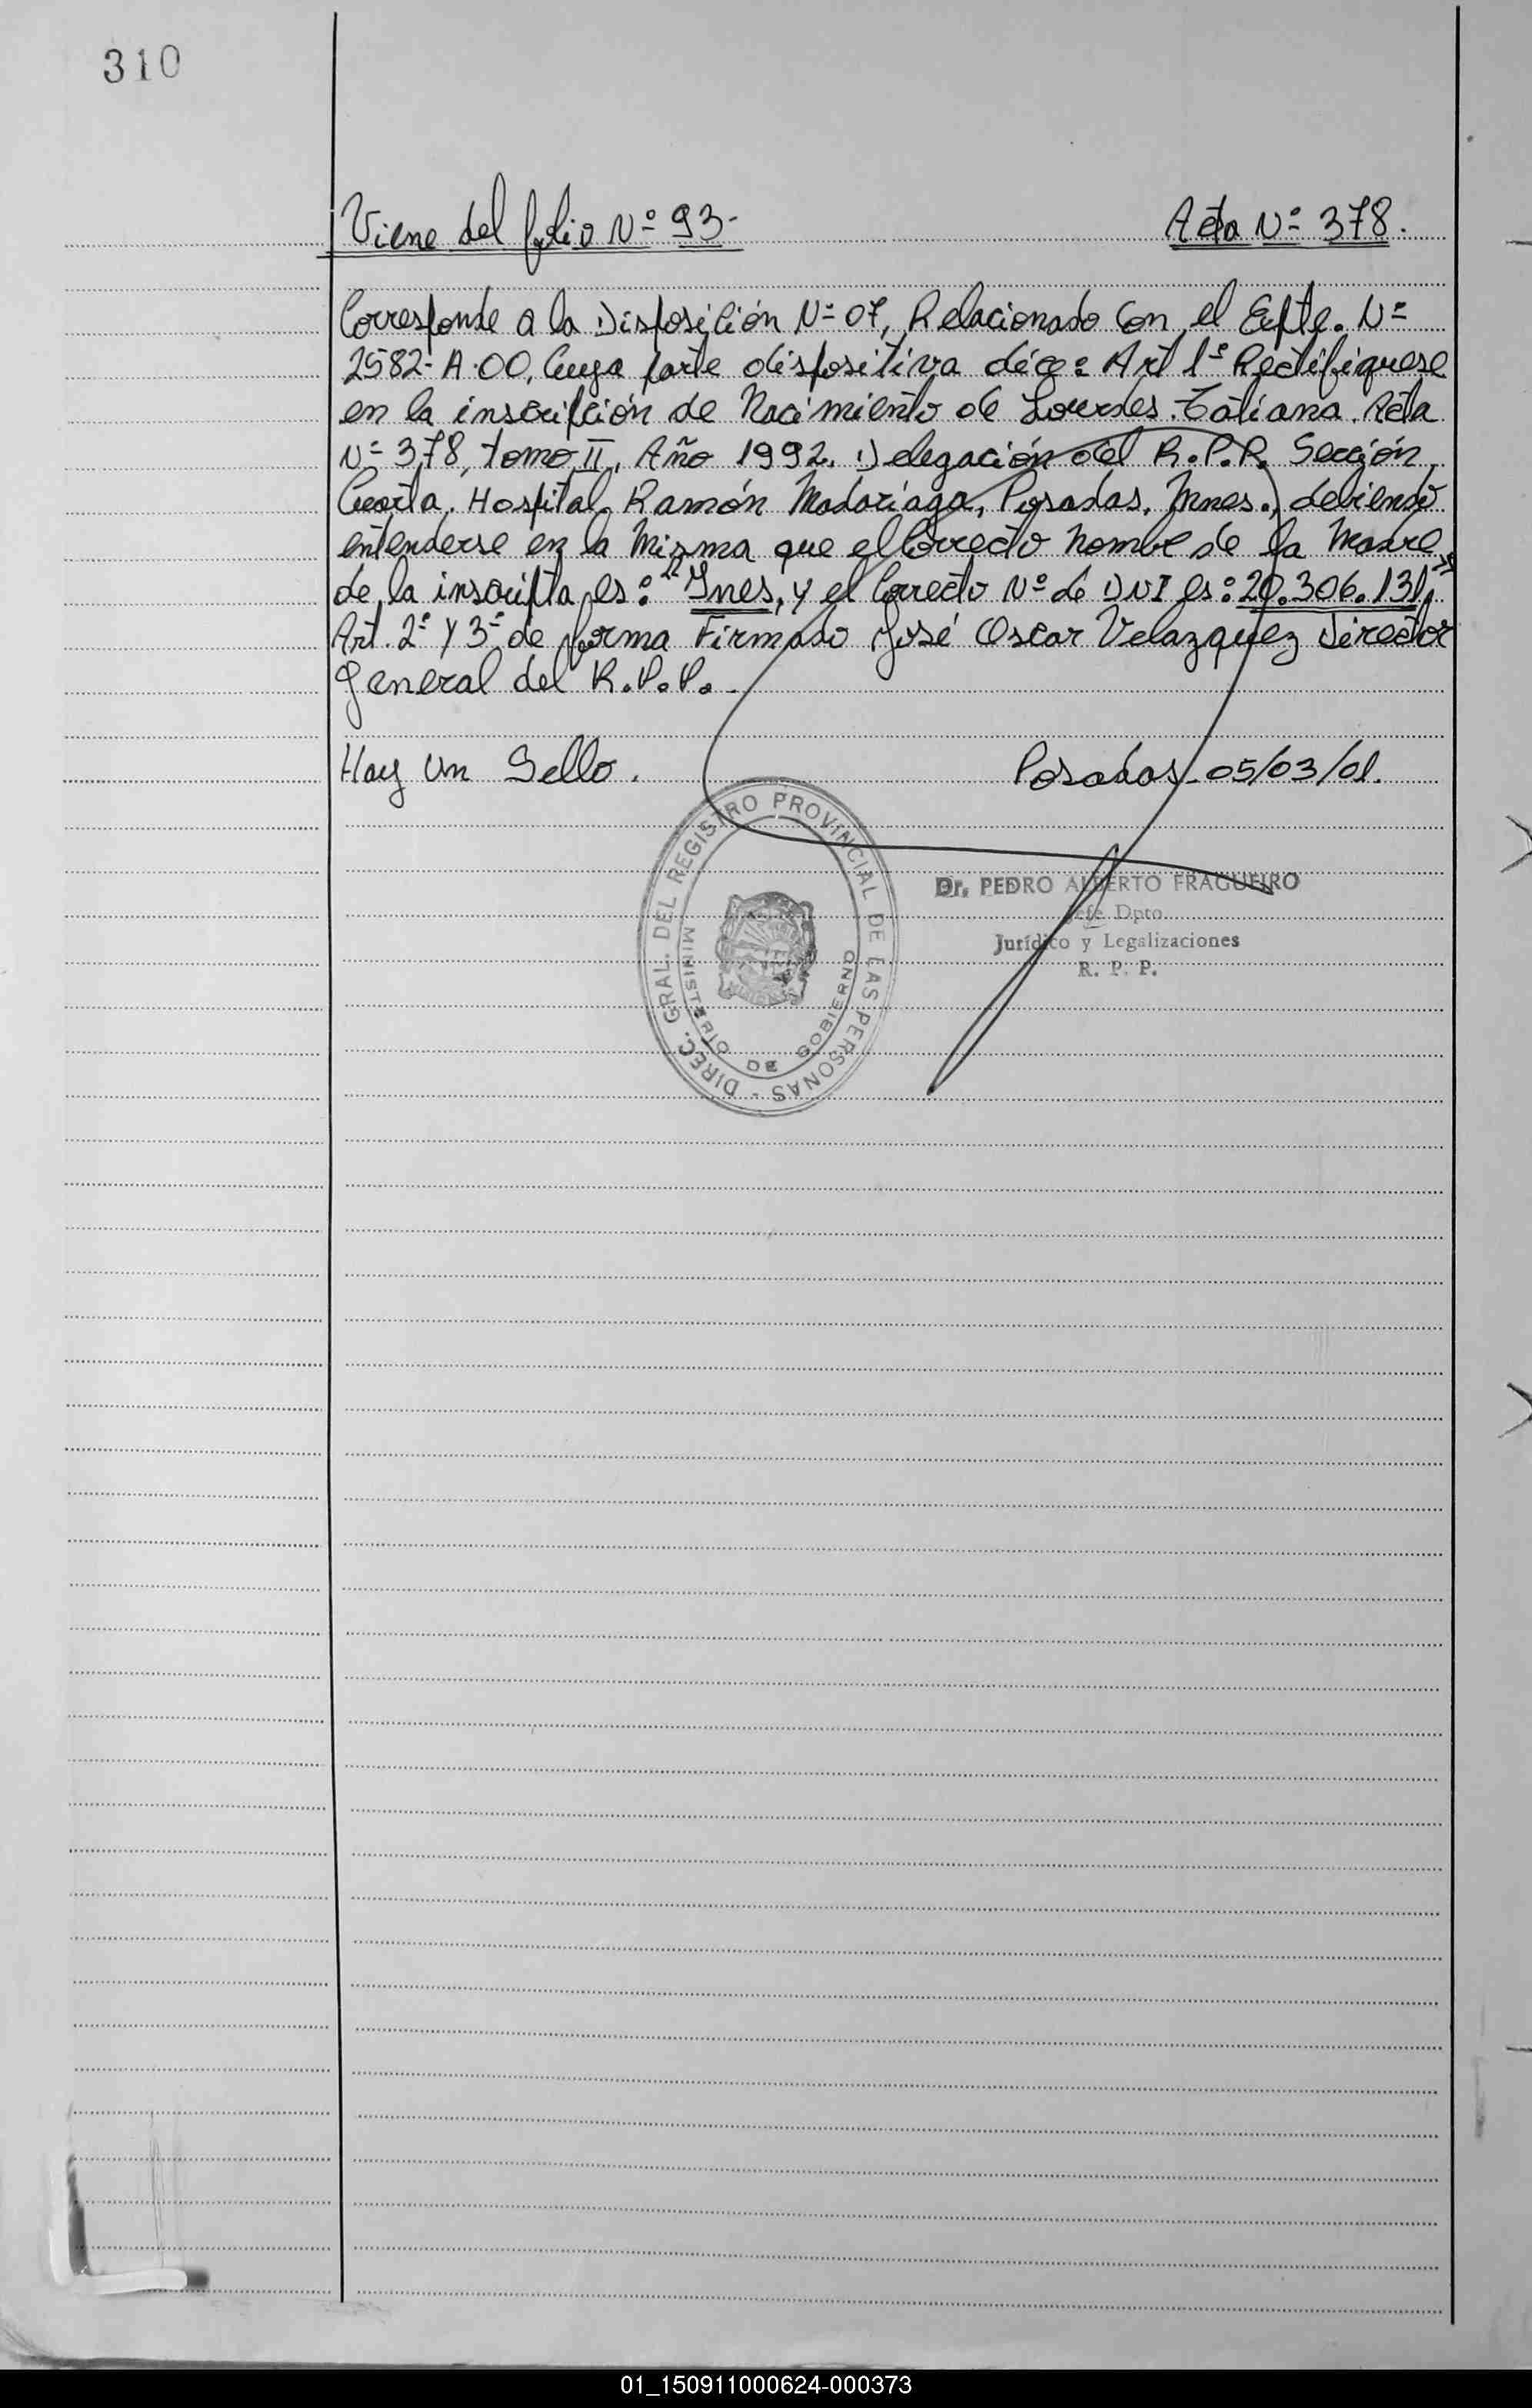 310
Viene del folio Nº 93.-
Acta Nº 378.
Corresponde a la Disposición Nº 07, Relacionado Con el Expte. Nº
2582-A-00, Cuya parte dispositiva dice: Art 1º Rectifiquese
en la inscripción de Nacimiento de Lourdes Tatiana. Acta
Nº 378, tomo II, Año 1992. Delegación del R.P.P. Sección
Cuarta. Hospital Ramón Madariaga, Posadas, Mnes., debiendo
entenderse en la Misma que el Correcto Nombre de la Madre
de la inscripta es: "Ines, y el Correcto Nº de DNI es: 20.306.131"
Art. 2º y 3º de forma Firmado José Oscar Velazquez Director
general del R.P.P. -
Hay Un Sello.
Posadas - 05/03/01.
DIREC. GRAL. DEL REGISTRO PROVINCIAL DE LAS PERSONAS -
MINISTERIO DE GOBIERNO
Dr. PEDRO ALBERTO FRAGUEIRO
Jefe Dpto.
Jurídico y Legalizaciones
R. P. P.
01_150911000624-000373